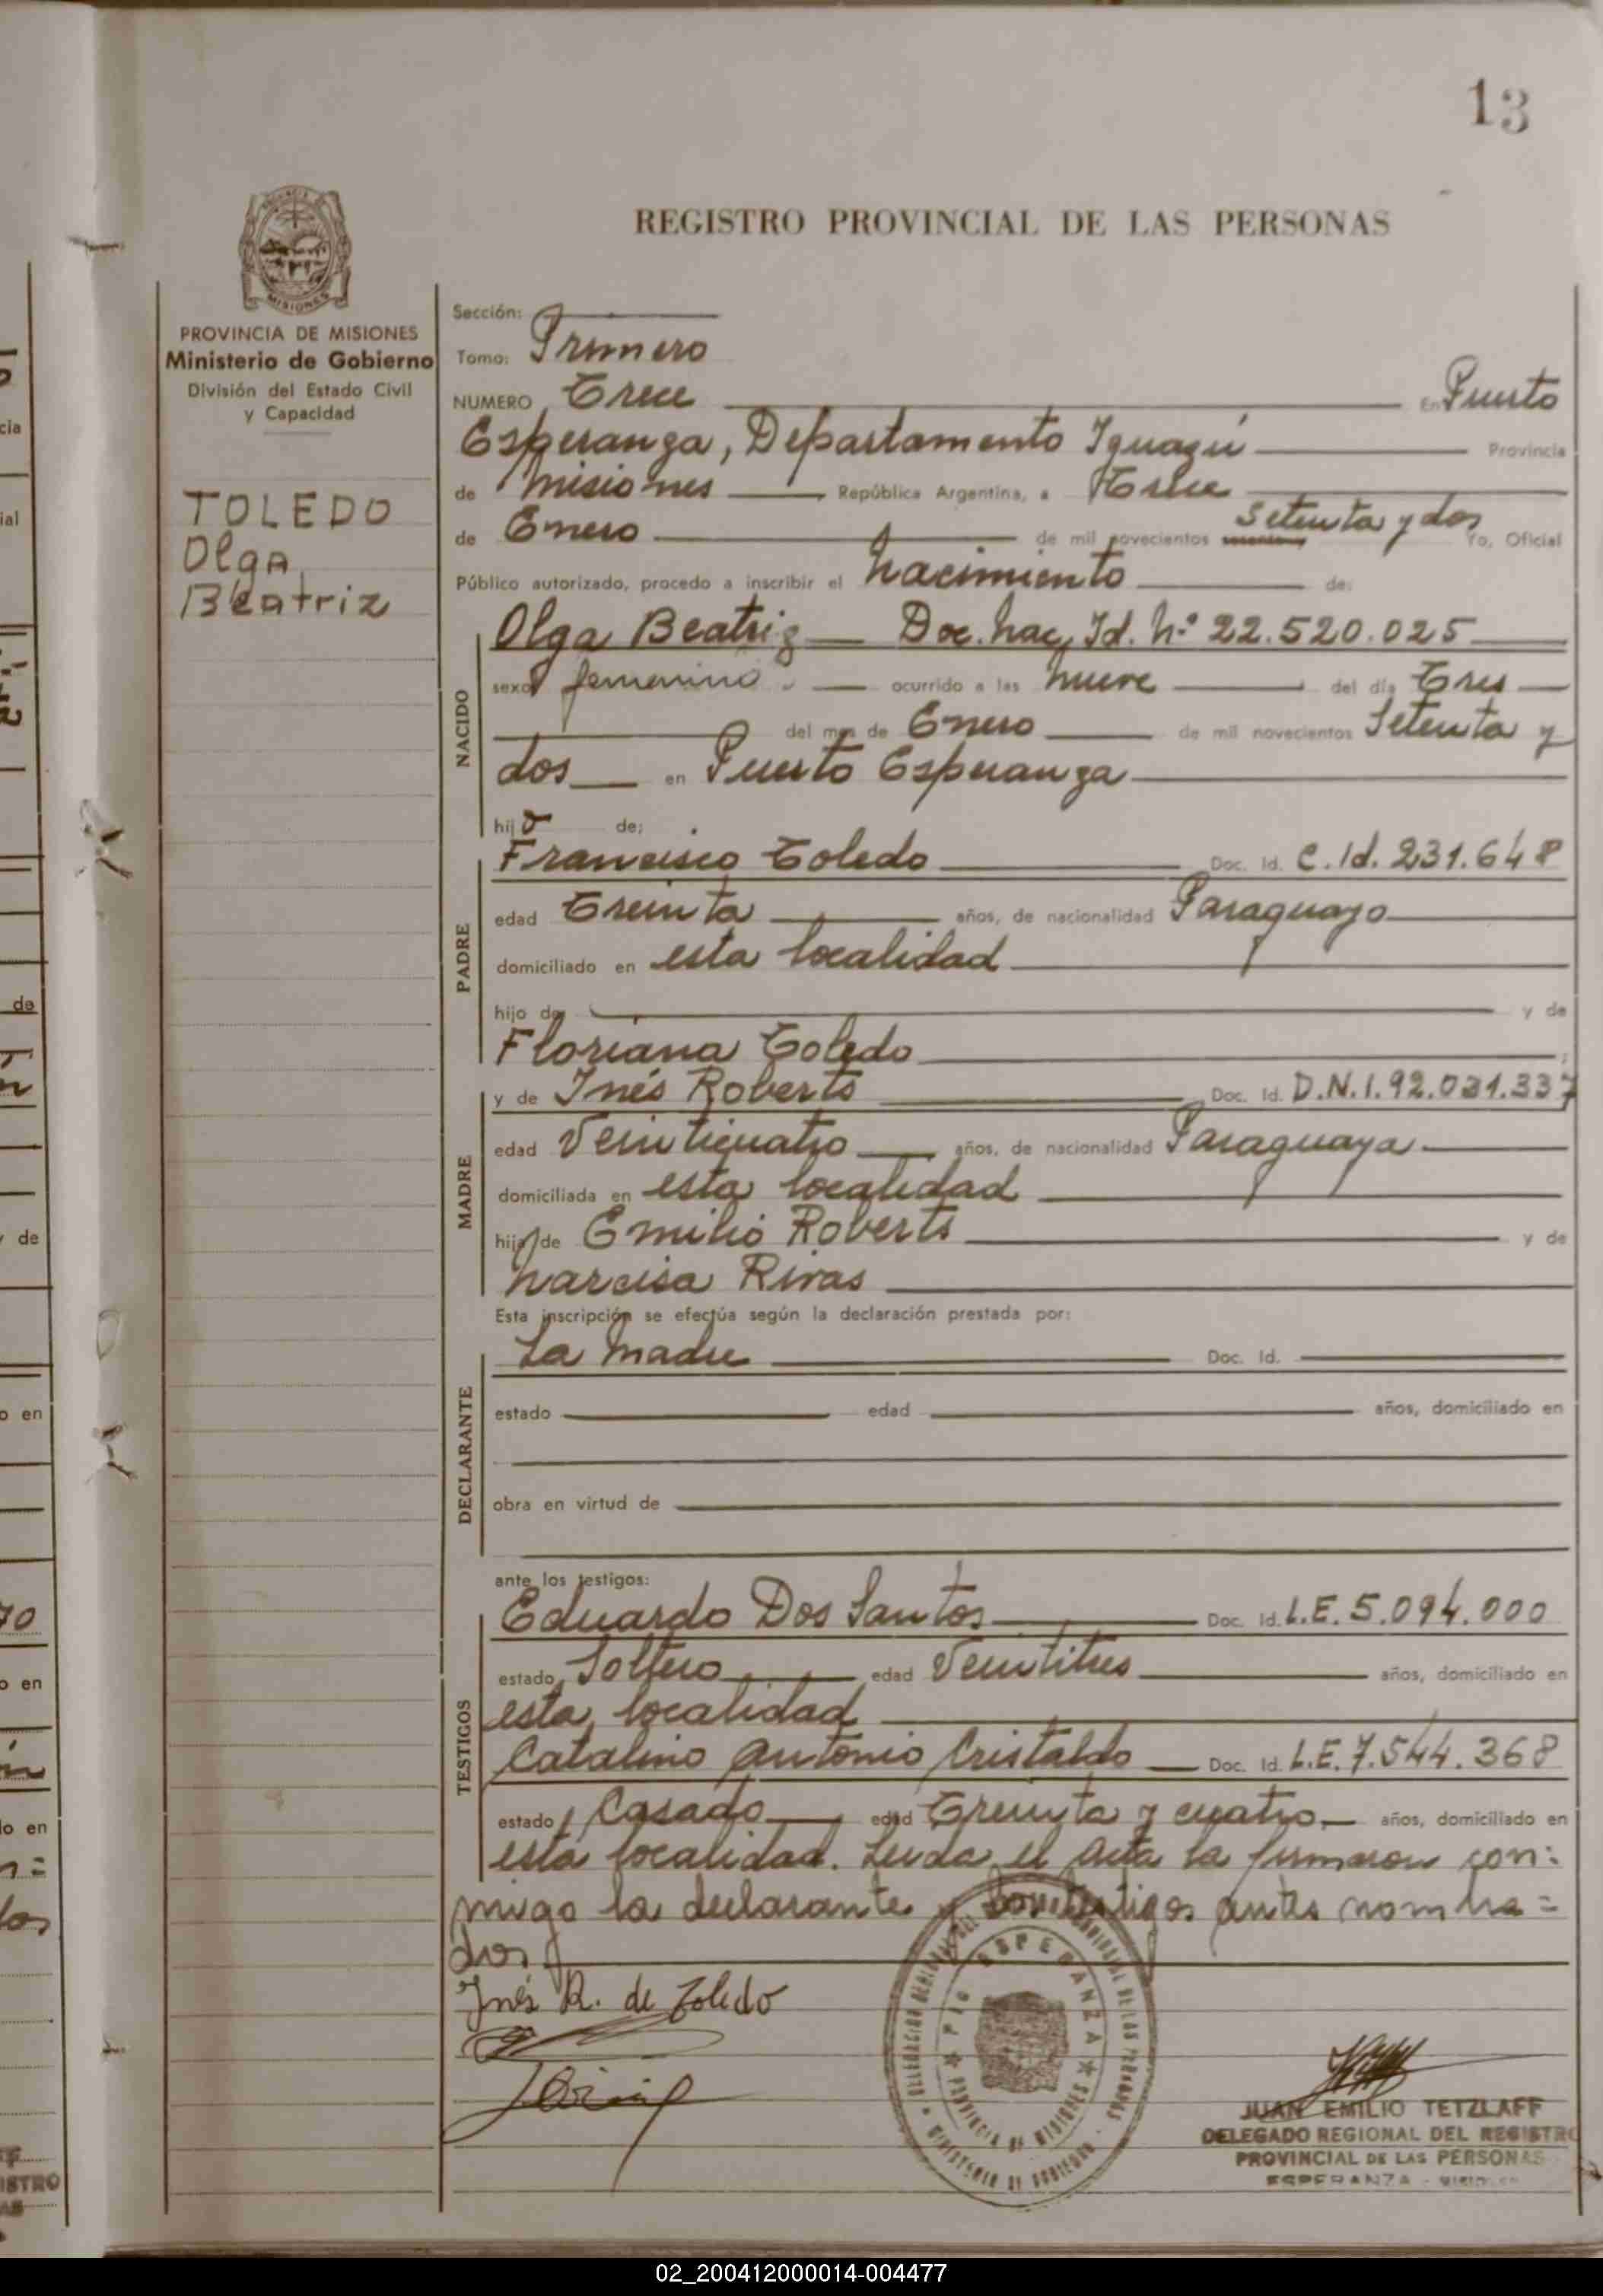 13
REGISTRO PROVINCIAL DE LAS PERSONAS
MISIONES
PROVINCIA DE MISIONES
Ministerio de Gobierno
División del Estado Civil
y Capacidad
TOLEDO
Olga
Beatriz
Sección:
Tomo: Primero
NUMERO Trece En Puerto
Esperanza, Departamento Iguazú Provincia
de Misiones República Argentina, a Trece
de Enero de mil novecientos setenta y dos Yo, Oficial
Público autorizado, procedo a inscribir el nacimiento de:
NACIDO
Olga Beatriz Doc. Nac. Id. Nº 22.520.025
sexo femenino ocurrido a las nueve del día Tres
del mes de Enero de mil novecientos Setenta y
dos en Puerto Esperanza
hija de:
PADRE
Francisco Toledo Doc. Id. C. Id. 231.648
edad Treinta años, de nacionalidad Paraguayo
domiciliado en esta localidad
hijo de y de
Floriana Toledo
MADRE
y de Inés Roberts Doc. Id. D.N.I. 92.031.337
edad Veinticuatro años, de nacionalidad Paraguaya
domiciliada en esta localidad
hija de Emilio Roberts y de
Narcisa Rivas
Esta inscripción se efectúa según la declaración prestada por:
DECLARANTE
La madre Doc. Id.
estado edad años, domiciliado en
obra en virtud de
ante los testigos:
TESTIGOS
Eduardo Dos Santos Doc. Id. L.E. 5.094.000
estado Soltero edad Veintitres años, domiciliado en
esta localidad
Catalino Antonio Cristaldo Doc. Id. L.E. 7.544.368
estado Casado edad Treinta y cuatro años, domiciliado en
esta localidad. Leida el Acta la firmaron con=
migo la declarante y los testigos antes nombra=
dos
Inés R. de Toledo
ESPERANZA
PROVINCIA DE MISIONES
MINISTERIO DE GOBIERNO
JUAN EMILIO TETZLAFF
DELEGADO REGIONAL DEL REGISTRO
PROVINCIAL DE LAS PERSONAS
ESPERANZA - MISIONES
02_200412000014-004477